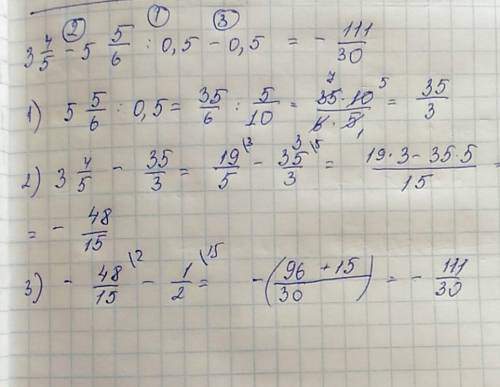 ② ① ③
3 4/5 - 5 5/6 : 0,5 - 0,5 = - 111/30
1) 5 5/6 : 0,5 = 35/6 : 5/10 = 35·10/6·5 = 35/3
2) 3 4/5 - 35/3 = 19/5 \3 - 35/3 \5 = 19·3-35·5/15 =
= - 48/15
3) - 48/15 \2 - 1/2 \15 = -(96+15/30) = - 111/30